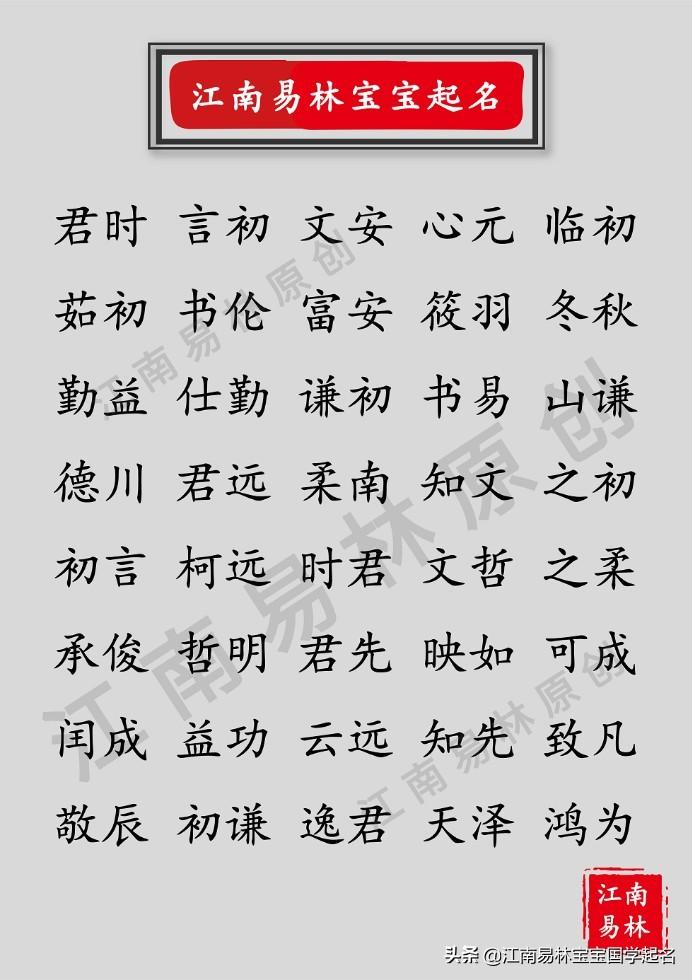 江南易林宝宝起名
君时 言初 文安 心元 临初
茹初 书伦 富安 筱羽 冬秋
勤益 仕勤 谦初 书易 山谦
德川 君远 柔南 知文 之初
初言 柯远 时君 文哲 之柔
承俊 哲明 君先 映如 可成
闰成 益功 云远 知先 致凡
敬辰 初谦 逸君 天泽 鸿为
江南易林原创
江南易林原创
江南易林原创
江南
易林
头条 @江南易林宝宝国学起名